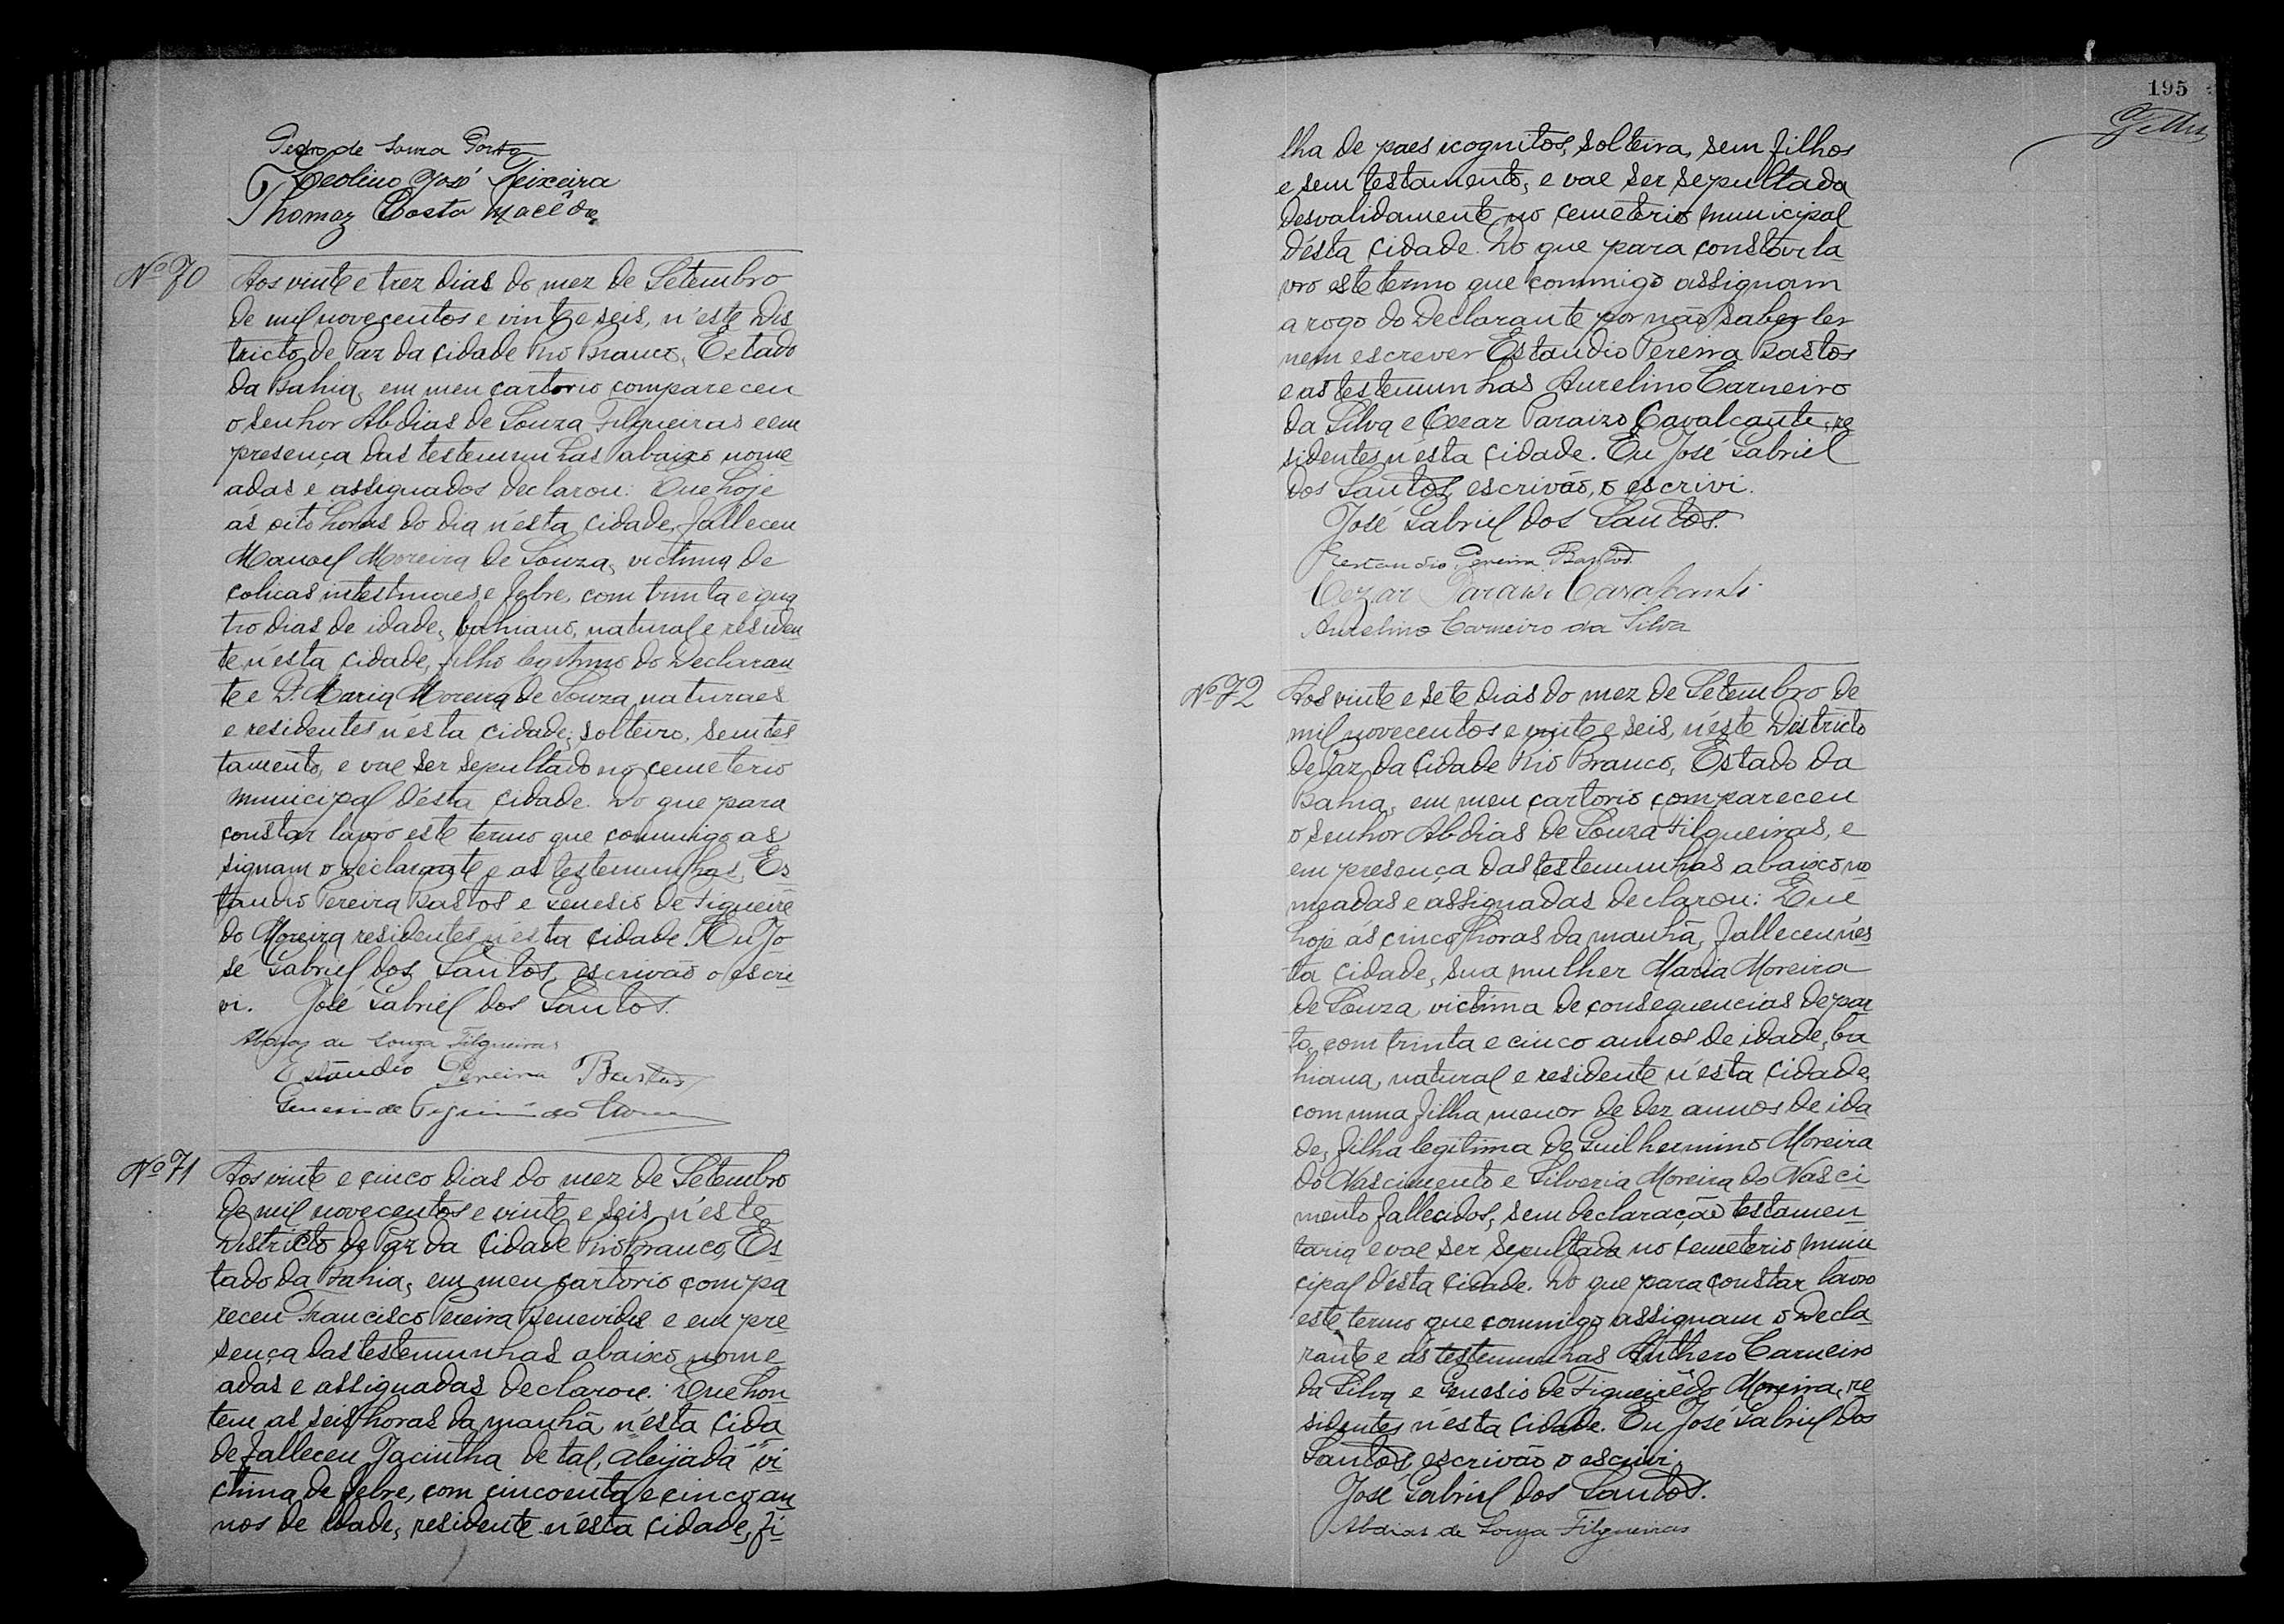 Pedro de Souza Porto
Teolino José Teixeira
Thomaz Costa Macêdo
Nº 70
Aos vinte e trez dias do mez de Setembro
de mil novecentos e vinte e seis, n'este Dis
tricto de Paz da Cidade Rio Branco, Estado
da Bahia, em meu cartorio compareceu
o senhor Abdias de Souza Filgueiras e em
presença das testemunhas abaixo nome
adas e assignados declarou: Que hoje
ás oito horas do dia n'esta cidade, falleceu
Manoel Moreira de Souza, victima de
colicas intestinaes e febre, com trinta e qua
tro dias de idade, bahiano, natural e residen
te n'esta cidade, filho legitimo do declaran
te e D. Maria Moreira de Souza, naturaes
e residentes n'esta cidade, solteiro, sem tes
tamento, e vae ser sepultado no cemeterio
municipal d'ésta cidade. Do que para
constar lavro este termo que commigo as
signam o declarante e as testemunhas, Es
tandio Pereira Bastos e Genesio de Figueirê
do Moreira residentes n'ésta cidade. Eu Jo
sé Gabriel dos Santos, escrivão o escre
vi. José Gabriel dos Santos.
Abdias de Souza Filgueiras
Estandio Pereira Bastos
Genesio de Figueirêdo
Nº 71
Aos vinte e cinco dias do mez de Setembro
de mil novecentos e vinte e seis, n'éste
Districto de Paz da Cidade Rio Branco, Es
tado da Bahia, em meu cartorio compa
receu Francisco Pereira Benevides e em pre
sença das testemunhas abaixo nome
adas e assignadas declarou: Que hon
tem as seis horas da manhã, n'esta cida
de falleceu Jacintha de tal, aleijada vi
ctima de febre, com cincoenta e cinco an
nos de idade, residente n'ésta cidade, fi
195
lha de paes icognitos, solteira, sem filhos
e sem testamento, e vae ser sepultada
desvalidamente no cemeterio municipal
d'ésta cidade. Do que para constar la
vro este termo que commigo assignam
a rogo do declarante por não saber ler
nem escrever Estandio Pereira Bastos
e as testemunhas Aurelino Carneiro
da Silva e Cezar Paraizo Cavalcante, re
sidentes n'ésta cidade. Eu José Gabriel
dos Santos, escrivão, o escrivi.
José Gabriel dos Santos.
Estandio Pereira Bastos
Cezar Paraiso Cavalcanti
Aurelino Carneiro da Silva
Nº 72
Aos vinte e sete dias do mez de Setembro de
mil novecentos e vinte e seis, n'éste Districto
de Paz da Cidade Rio Branco, Estado da
Bahia, em meu cartorio compareceu
o senhor Abdias de Souza Filgueiras, e
em presença das testemunhas abaixo no
meadas e assignadas declarou: Que
hoje ás cinco horas da manhã, falleceu n'és
ta cidade, sua mulher Maria Moreira
de Souza, victima de consequencias de par
to, com trinta e cinco annos de idade, ba
hiana, natural e residente n'ésta cidade,
com uma filha menor de dez annos de ida
de, filha legitima de Guilhermino Moreira
do Nascimento e Silveria Moreira do Nasci
mento fallecidos, sem declaração testamen
taria e vae ser sepultada no cemeterio muni
cipal d'ésta cidade. Do que para constar lavro
este termo que commigo assignam o decla
rante e as testemunhas Anthero Carneiro
da Silva e Genesio de Figueirêdo Moreira, re
sidentes n'ésta cidade. Eu José Gabriel dos
Santos, escrivão o escrivi.
José Gabriel dos Santos.
Abdias de Souza Filgueiras